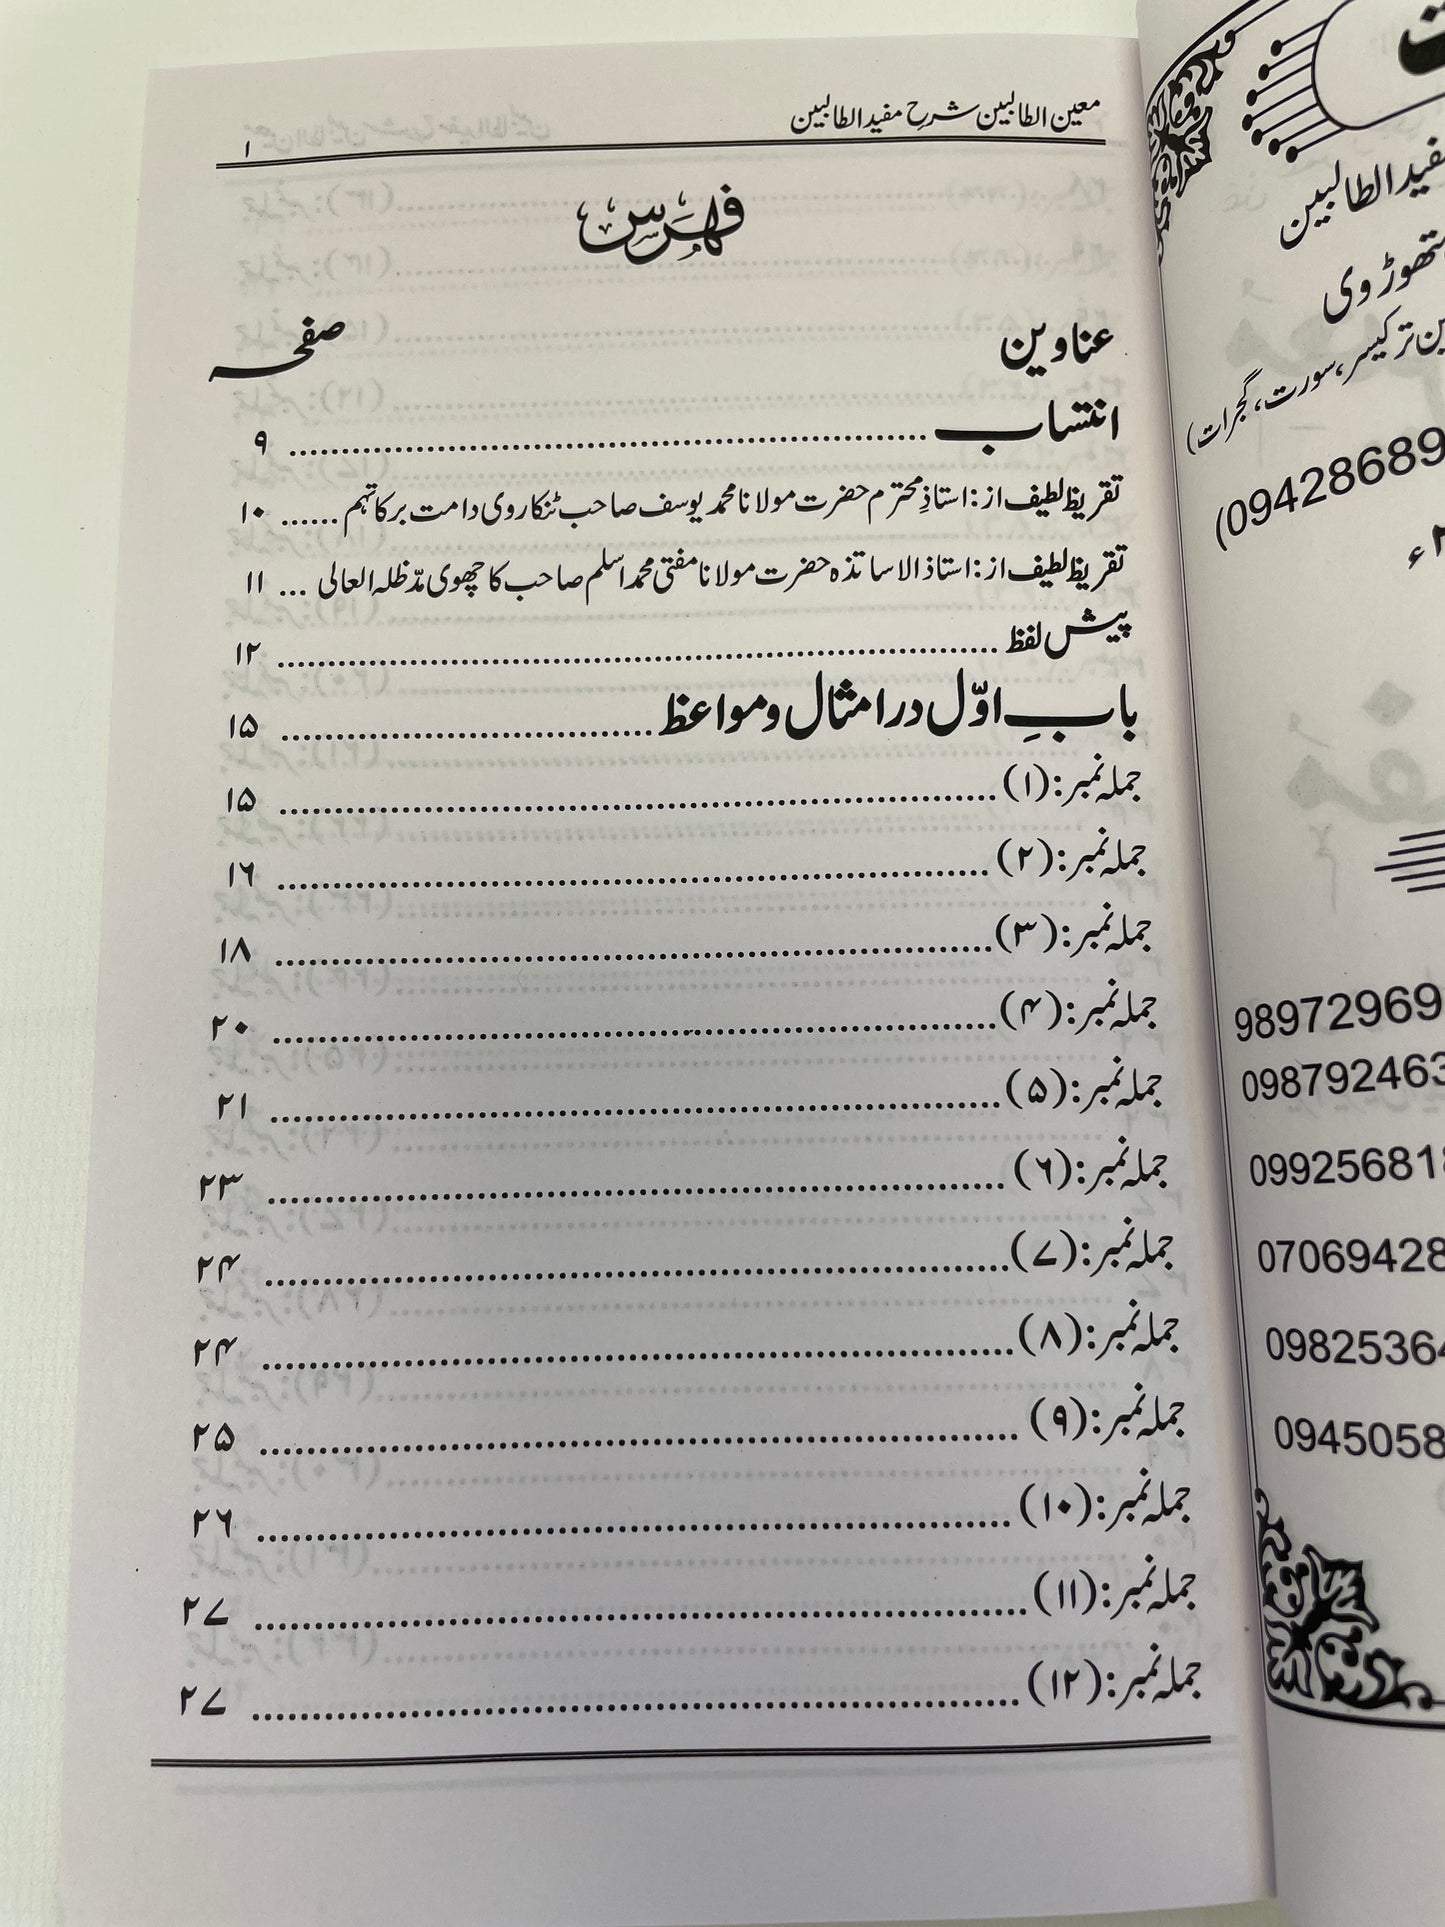 معین الطالبین شرح مفید الطالبین ۱
فہرس
عناوین صفحہ
انتساب ۹
تقریظ لطیف از: استاذِ محترم حضرت مولانا محمد یوسف صاحب ٹنکاروی دامت برکاتہم ...... ۱۰
تقریظ لطیف از: استاذ الاساتذہ حضرت مولانا مفتی محمد اسلم صاحب کاچھوی مدّ ظلہ العالی ... ۱۱
پیش لفظ ۱۲
بابِ اوّل در امثال و مواعظ ۱۵
جملہ نمبر: (۱) ۱۵
جملہ نمبر: (۲) ۱۶
جملہ نمبر: (۳) ۱۸
جملہ نمبر: (۴) ۲۰
جملہ نمبر: (۵) ۲۱
جملہ نمبر: (۶) ۲۳
جملہ نمبر: (۷) ۲۴
جملہ نمبر: (۸) ۲۴
جملہ نمبر: (۹) ۲۵
جملہ نمبر: (۱۰) ۲۶
جملہ نمبر: (۱۱) ۲۷
جملہ نمبر: (۱۲) ۲۷
مفید الطالبین
ترکیسر، سورت، گجرات)
(09428689
98972969
098792463
099256818
07069428
09825364
0945058